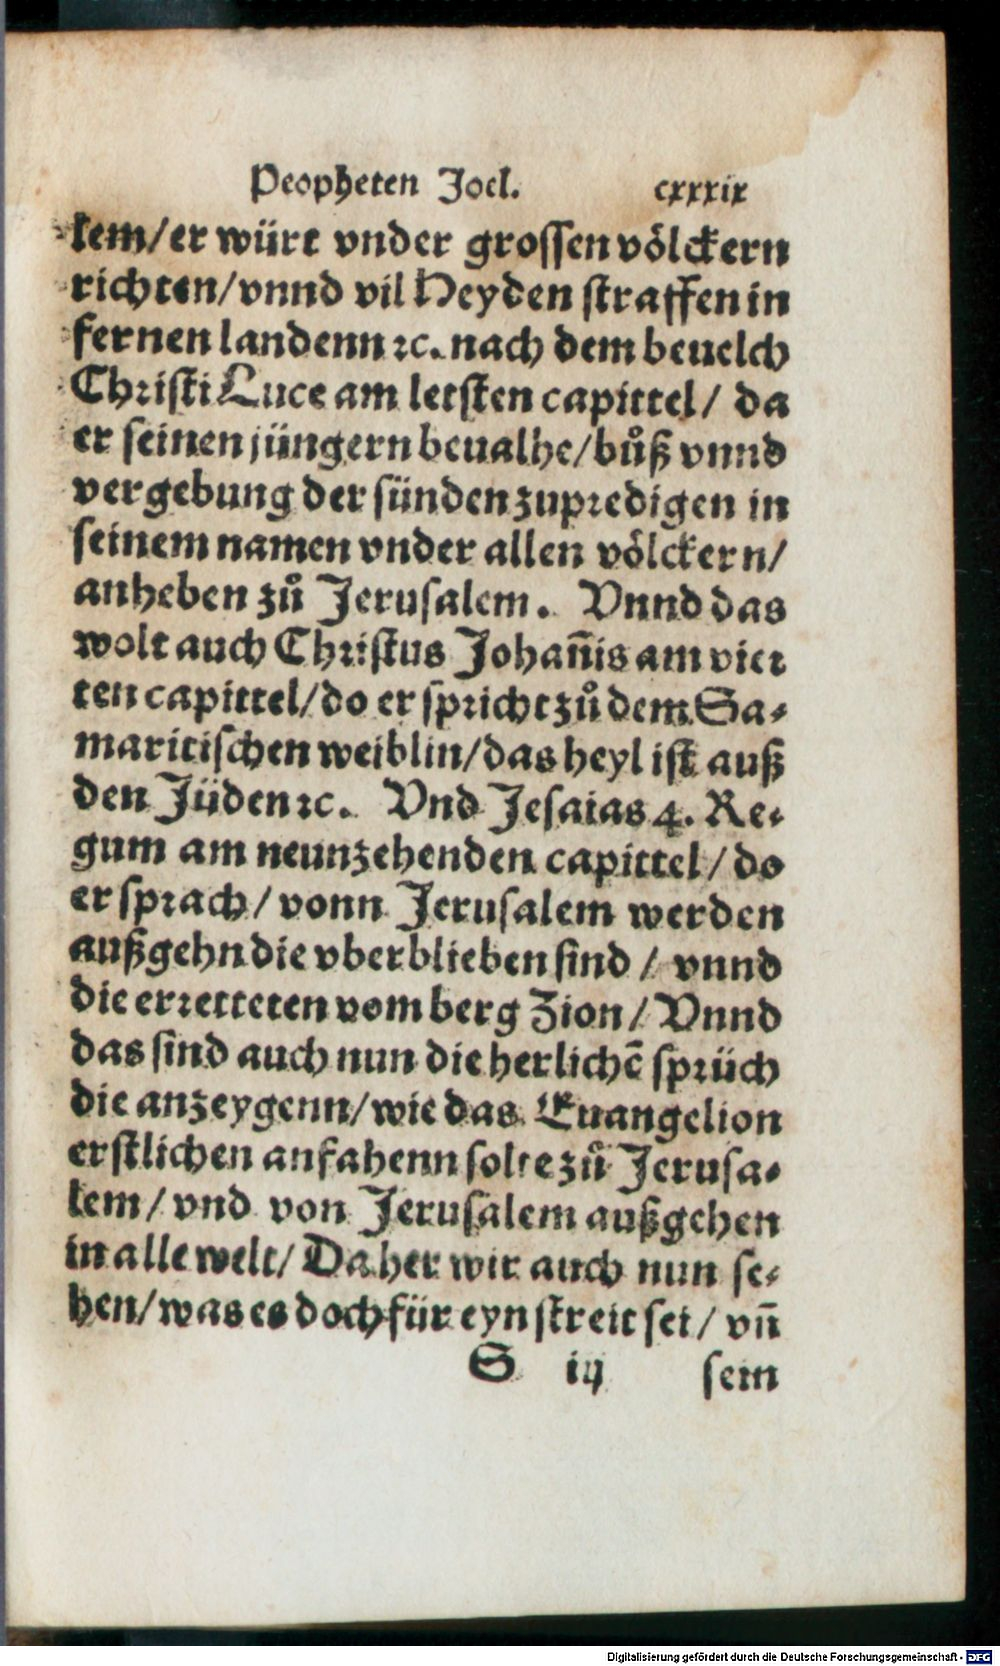 Peopheten Joel. cxxxix
lem/er würt vnder grossen völckern
richten/vnnd vil Heyden straffen in
fernen landenn ⁊c. nach dem beuelch
Christi Luce am letsten capittel/ da
er seinen jüngern beualhe/bůß vnnd
vergebung der sünden zupredigen in
seinem namen vnder allen völckern/
anheben zů Jerusalem. Vnnd das
wolt auch Christus Johan̄is am vier
ten capittel/do er spricht zů dem Sa-
maritischen weiblin/das heyl ist auß
den Jüden ⁊c. Vnd Jesaias 4. Re-
gum am neunzehenden capittel/ do
er sprach/ vonn Jerusalem werden
außgehn die vberblieben sind / vnnd
die erretteten vom berg Zion/ Vnnd
das sind auch nun die herlichē sprüch
die anzeygenn/wie das Euangelion
erstlichen anfahenn solte zů Jerusa-
lem/ vnd von Jerusalem außgehen
in alle welt/ Da her wir auch nun se-
hen/was es doch für eyn streit sei/ vn̄
S iij sem
Digitalisierung gefördert durch die Deutsche Forschungsgemeinschaft - DFG